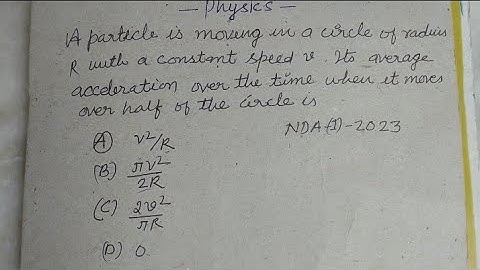 — Physics —
A particle is moving in a circle of radius
R with a constant speed v. Its average
acceleration over the time when it moves
over half of the circle is
NDA-(I)-2023
(A) v²/R
(B) πv²/2R
(C) 2v²/πR
(D) 0